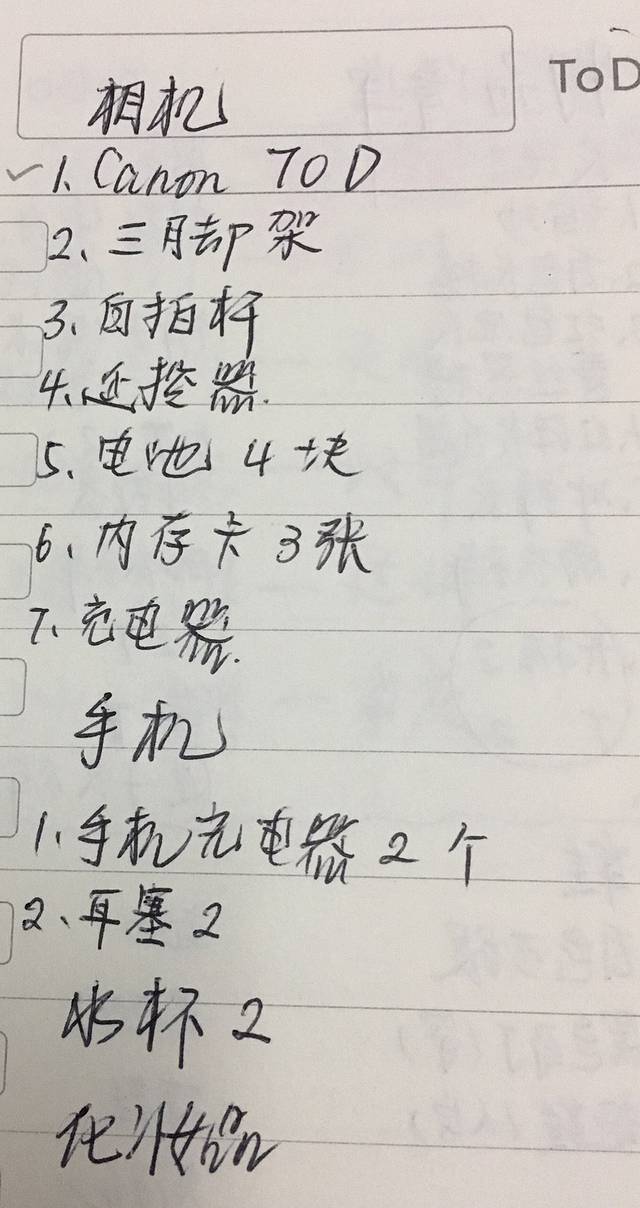 ToD
相机
1、Canon 70D
2、三月却架
3、自拍杆
4、遥控器.
5、电池 4块
6、内存卡 3张
7、充电器.
手机
1、手机充电器 2个
2、耳塞 2
水杯 2
化妆品